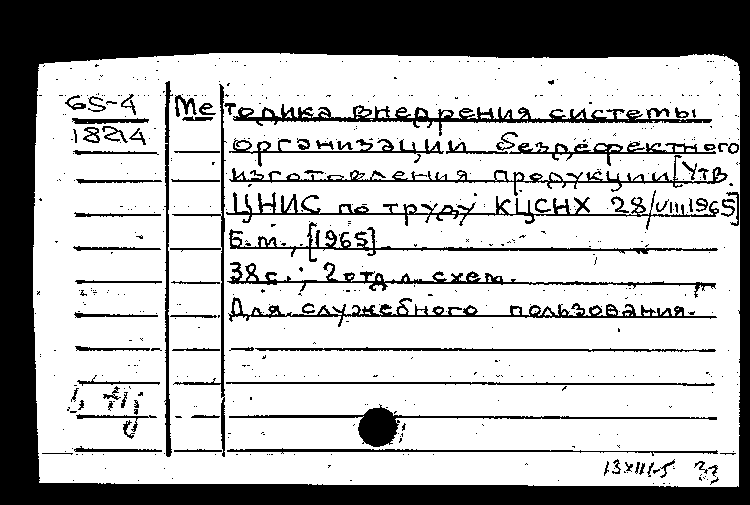 65-4
18214
Методика внедрения системы
организации бездефектного
изготовления продукции [Утв.
ЦНИС по труду КЦСНХ 28/VIII 1965]
Б.м., [1965].
38 с.; 2 отд. л. схем.
Для служебного пользования.